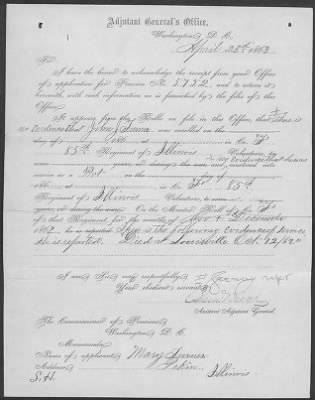 Adjutant General's Office,
Washington, D. C.
April 28th 1863
Sir:
I have the honor to acknowledge the receipt from your Office
of application for Pension No. 8752, and to return it
herewith, with such information as is furnished by the files of this
Office.
It appears from the Rolls on file in this Office, that there is
no evidence that John was enrolled on the
day of 186 in Co. F
85th Regiment of Illinois Volunteers, to
no evidence that he was
as a Pvt. on the day of
186 , in Co. F 85th
Regiment of Illinois Volunteers, to serve
years, or during the war. On the Muster Roll of Co. F
of that Regiment, for the months of Nov & December
1862, he is reported the following evidence of service
He is reported. Died at Louisville Oct. 12/62"
I am Sir, very respectfully,
Your obedient servant,
Assistant Adjutant General.
The Commissioner of Pensions
Washington D. C.
Memoranda:
Name of applicant, Mary
Address Pekin, Illinois